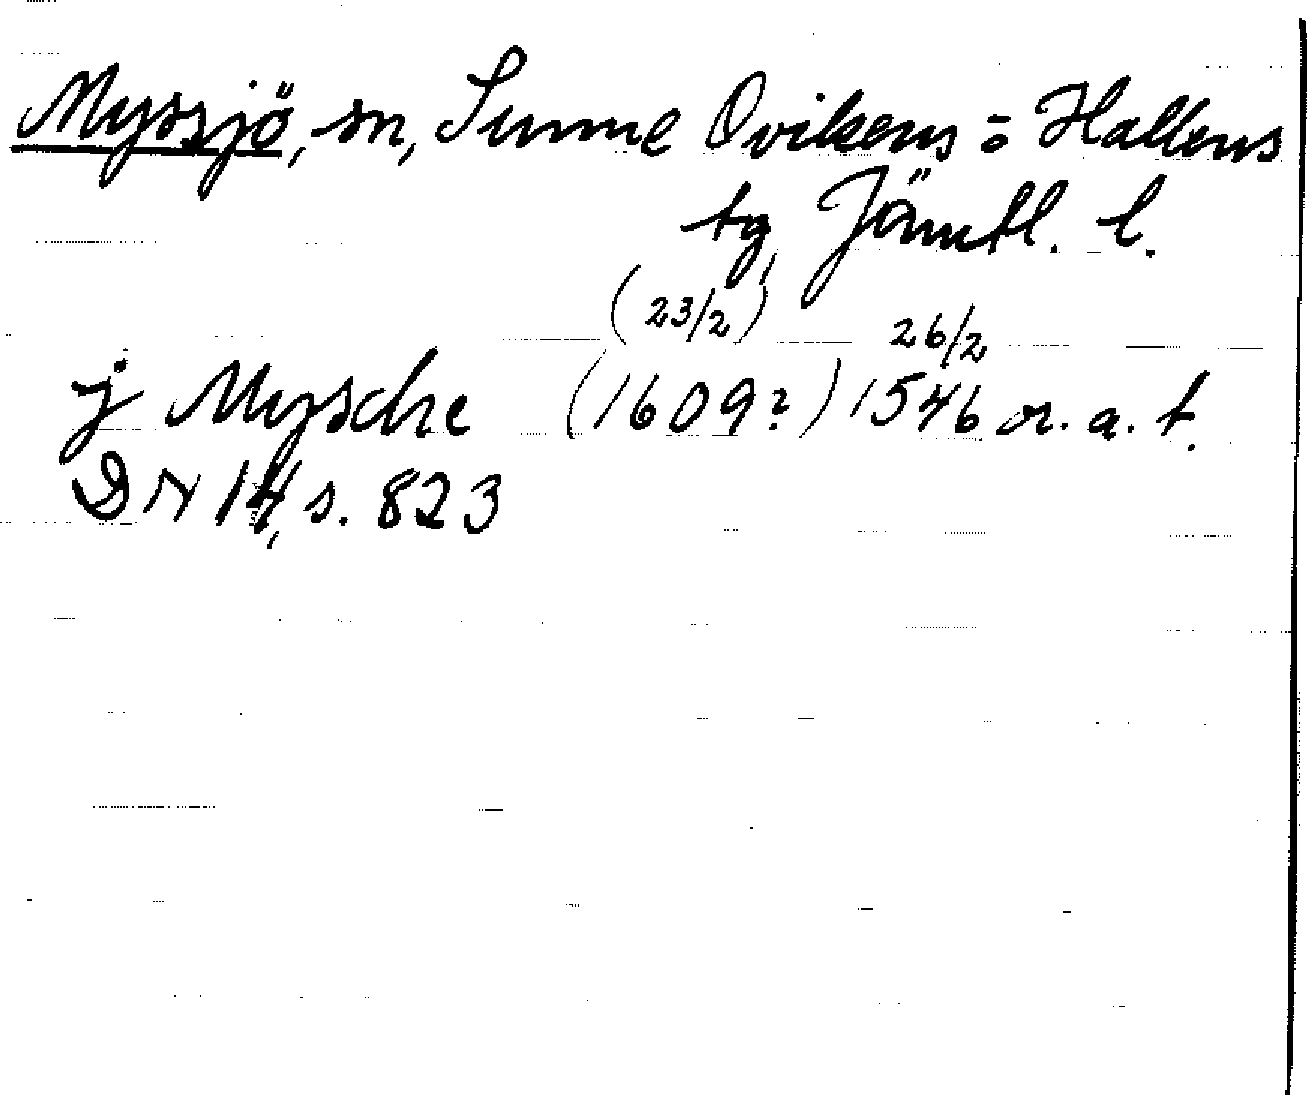 Myssjö, sn, Sunne Ovikens o Hallens
tg Jämtl. l.
(23/2) 26/2
j Mysche (1609?) 1546 or. a. t.
DN 14, s. 823